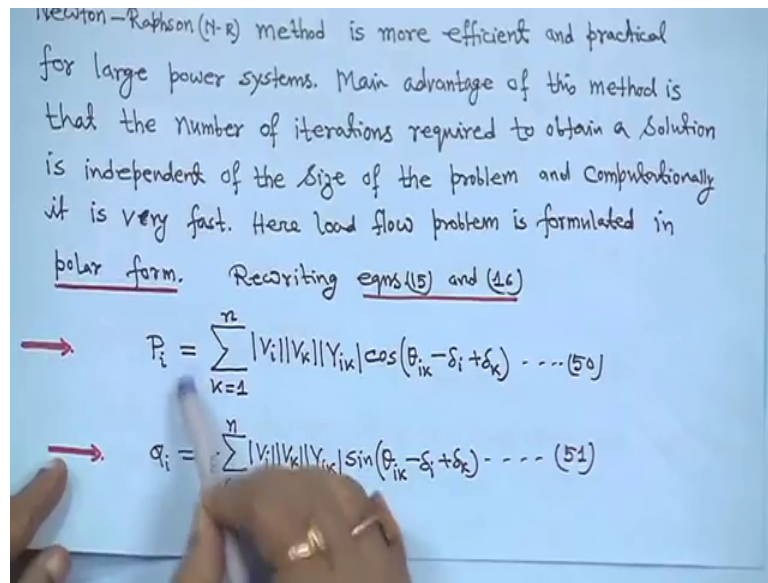 Newton-Raphson (N-R) method is more efficient and practical
for large power systems. Main advantage of this method is
that the number of iterations required to obtain a solution
is independent of the size of the problem and computationally
it is very fast. Here load flow problem is formulated in
polar form. Rewriting eqns.(15) and (16)
→ Pᵢ = ∑ₖ₌₁ⁿ |Vᵢ||Vₖ||Yᵢₖ| cos(θᵢₖ − δᵢ + δₖ) ----- (50)
→ qᵢ = - ∑ⁿ |Vᵢ||Vₖ||Yᵢₖ| sin(θᵢₖ − δᵢ + δₖ) ----- (51)